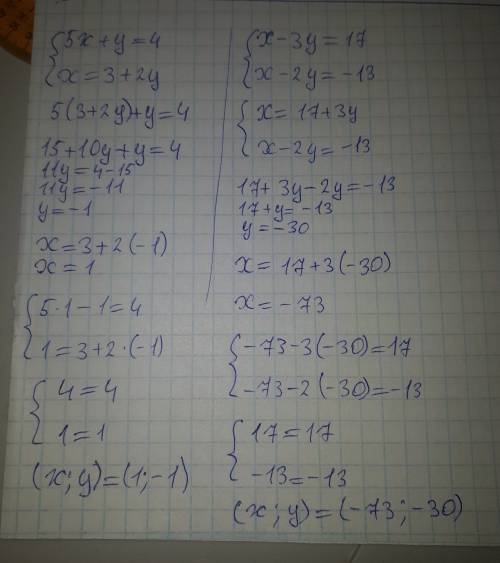 5x+y=4
x=3+2y
5(3+2y)+y=4
15+10y+y=4
11y=4-15
11y=-11
y=-1
x=3+2(-1)
x=1
5·1-1=4
1=3+2·(-1)
4=4
1=1
(x;y)=(1;-1)
x-3y=17
x-2y=-13
x=17+3y
x-2y=-13
17+3y-2y=-13
17+y=-13
y=-30
x=17+3(-30)
x=-73
-73-3(-30)=17
-73-2(-30)=-13
17=17
-13=-13
(x;y)=(-73;-30)